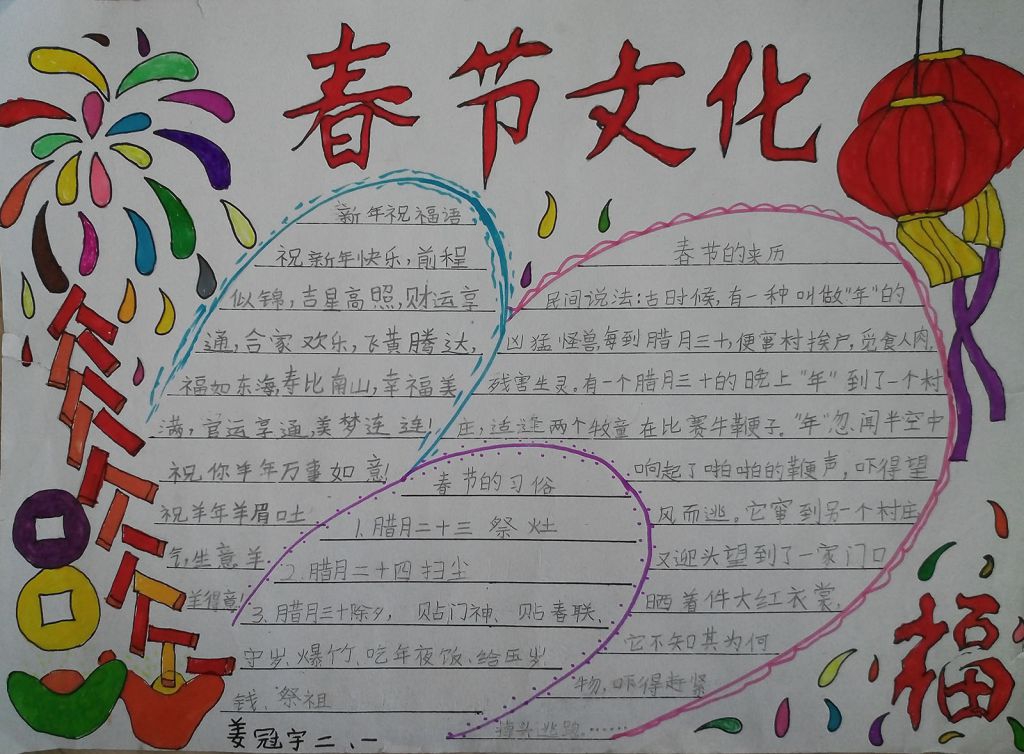 春节文化
新年祝福语
祝新年快乐，前程
似锦，吉星高照，财运享
通，合家欢乐，飞黄腾达，
福如东海，寿比南山，幸福美
满，官运享通，美梦连连！
祝你羊年万事如意！
祝羊年羊眉吐
气，生意羊
羊得意！
春节的来历
民间说法：古时候，有一种叫做"年"的
凶猛怪兽，每到腊月三十，便窜村挨户，觅食人肉，
残害生灵。有一个腊月三十的晚上"年"到了一个村
庄，适逢两个牧童在比赛牛鞭子。"年"忽闻半空中
响起了啪啪的鞭声，吓得望
风而逃。它窜到另一个村庄
又迎头望到了一家门口
晒着件大红衣裳，
它不知其为何
物，吓得赶紧
掉头逃跑……
春节的习俗
1.腊月二十三 祭灶
2.腊月二十四扫尘
3.腊月三十除夕，贴门神、贴春联、
守岁、爆竹、吃年夜饭、给压岁
钱、祭祖
福
姜冠宇二、一